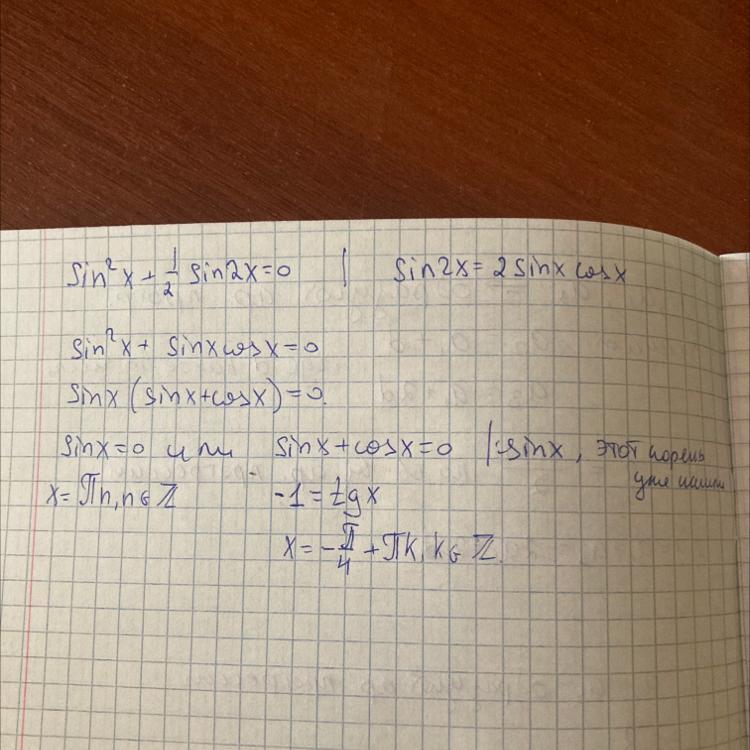 sin²x + 1/2 sin2x=0 | sin2x= 2 sinx cosx
sin²x + sinxcosx=0
sinx (sinx+cosx)=0.
sinx=0 или sinx+cosx=0 |:sinx, этот корень
уже нашли
x= πn, n∈ℤ -1= tgx
x= -π/4 + πk, k∈ ℤ.